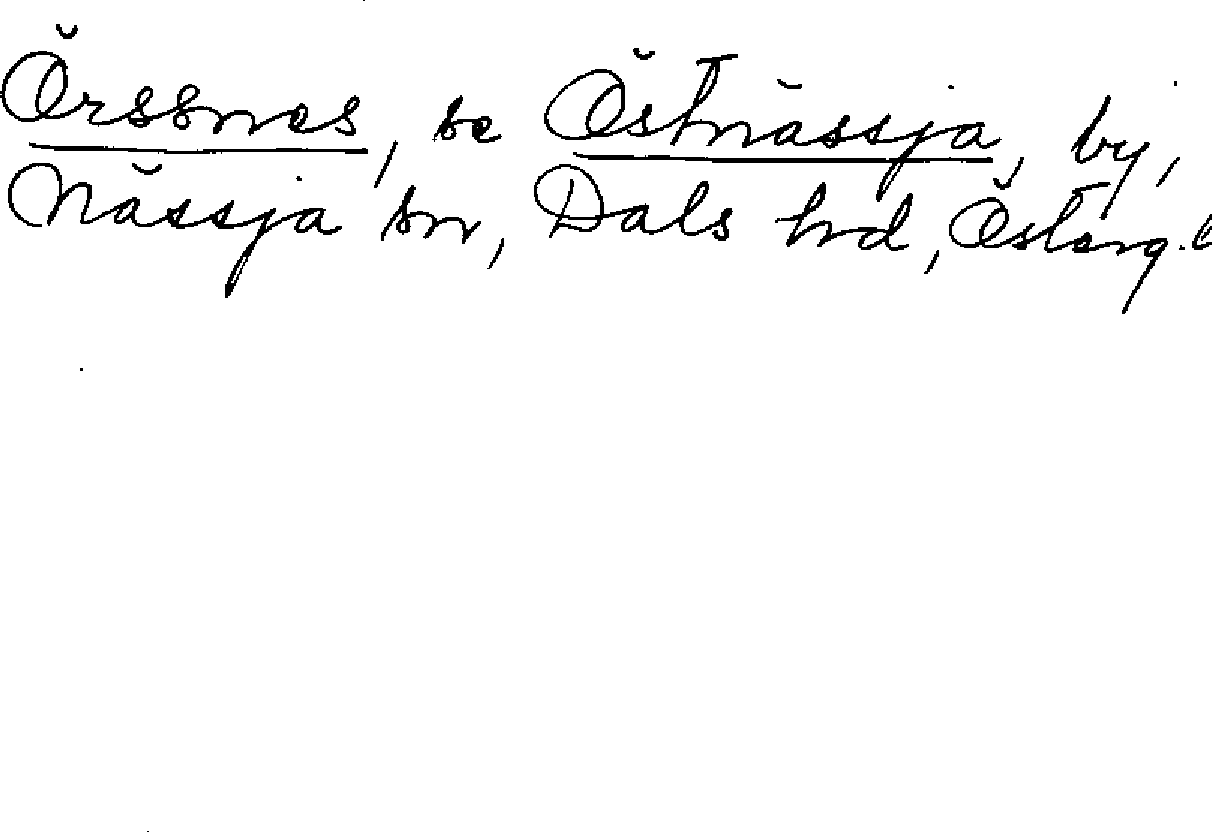 Örssnes, se Östnässja, by,
Nässja sn, Dals hrd, Österg. l